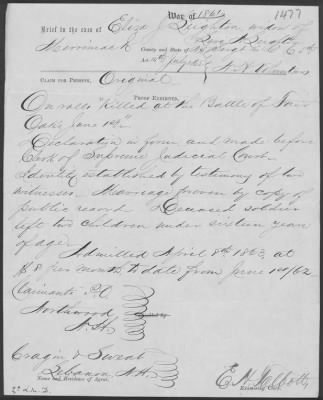 War of 1861
1477
Brief in the case of Eliza J. Leighton widow of
Merrimack County and State of N.H.
Act 14th July 1862
CLAIM FOR PENSION, Original
PROOF EXHIBITED,
On rolls "Killed at the Battle of Fair
Oaks June 1st"
Declaration in form and made before
Clerk of Supreme Judicial Court.
Identity established by testimony of two
witnesses. Marriage proven by copy of
public record. Deceased soldier
left two children under sixteen years
of age.
Admitted April 8th 1863, at
$8 per month to date from June 1st/62
Claimants P.O.
Northwood
N.H.
Cragin & Sweat
Lebanon N.H.
Name and Residence of Agent.
E. H. Talbott,
Examining Clerk.